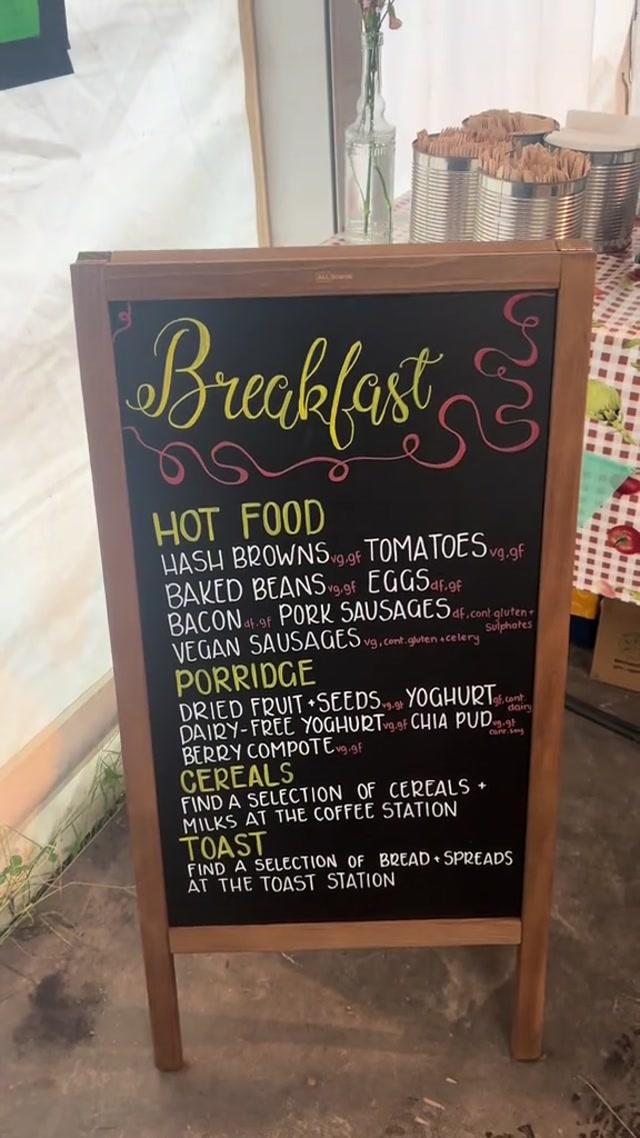 Breakfast
HOT FOOD
HASH BROWNS vg,gf TOMATOES vg,gf
BAKED BEANS vg,gf EGGS df,gf
BACON df.gf PORK SAUSAGES df, cont.gluten + Sulphates
VEGAN SAUSAGES vg, cont.gluten + celery
PORRIDGE
DRIED FRUIT + SEEDS vg,gf YOGHURT gf, cont. dairy
DAIRY-FREE YOGHURT vg,gf CHIA PUD vg.gf cont.soy
BERRY COMPOTE vg,gf
CEREALS
FIND A SELECTION OF CEREALS +
MILKS AT THE COFFEE STATION
TOAST
FIND A SELECTION OF BREAD + SPREADS
AT THE TOAST STATION